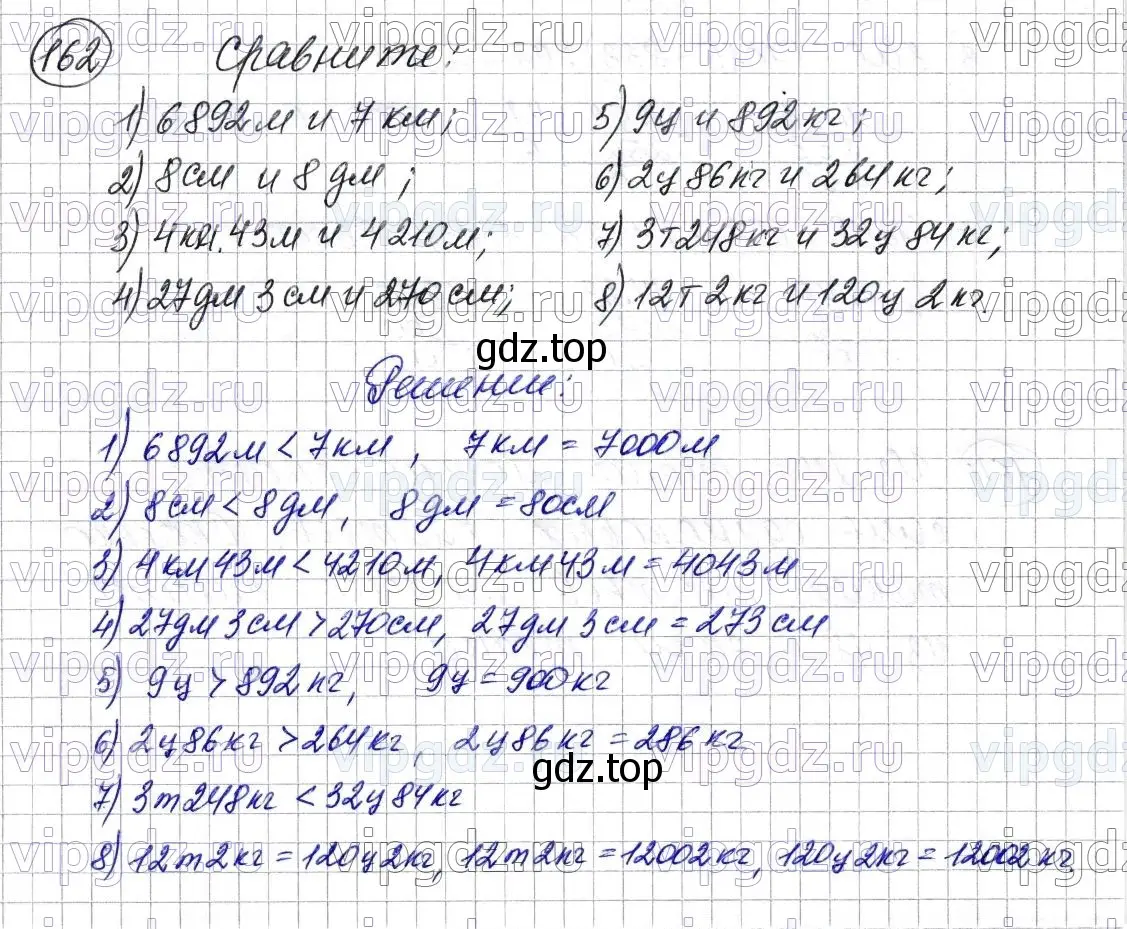 162 Сравните:
1) 6892м и 7 км;
2) 8см и 8 дм;
3) 4км. 43м и 4210м;
4) 27дм 3см и 270см;
5) 9ц и 892кг;
6) 2ц 86кг и 264кг;
7) 3т248кг и 32ц 84кг;
8) 12т 2кг и 120ц 2кг.
gdz.top
Решение:
1) 6892м < 7км, 7км = 7000м
2) 8см < 8дм, 8дм = 80см
3) 4км43м < 4210м, 4км43м = 4043м
4) 27дм 3см > 270см, 27дм 3см = 273см
5) 9ц > 892кг, 9ц = 900кг
6) 2ц86кг > 264кг, 2ц86кг = 286кг
gdz.top
7) 3т248кг < 32ц84кг
8) 12т2кг = 120ц2кг, 12т2кг = 12002кг, 120ц2кг = 12002кг.
vipgdz.ru